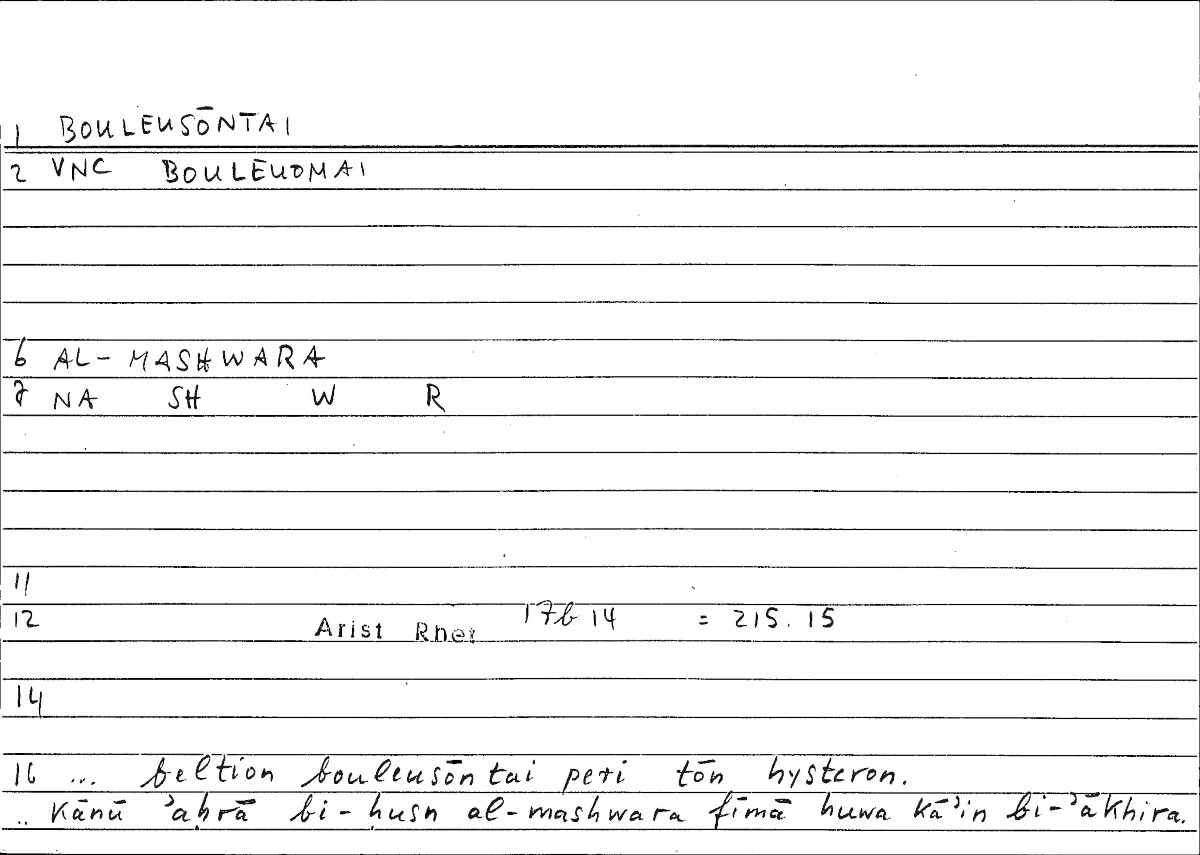 1 BOULEUSŌNTAI
2 VNC BOULEUOMAI
6 AL-MASHWARA
7 NA SH W R
11
12 Arist Rhet 17b14 = 215.15
14
16 ... beltion bouleusōntai peri tōn hysteron.
.. kānū ʾaḥrā bi-ḥusn al-mashwara fīmā huwa kāʾin bi-ʾākhira.